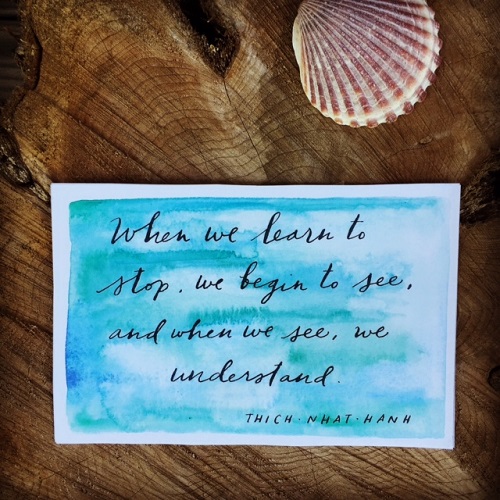 When we learn to
stop, we begin to see,
and when we see, we
understand.
THICH · NHAT · HANH